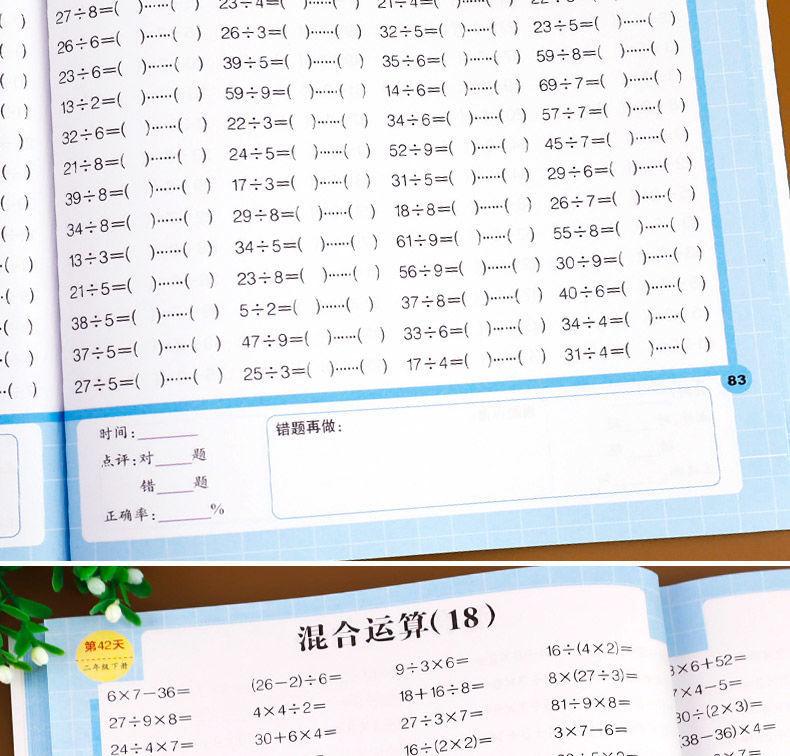 27÷8=( )……( ) 23÷4=( )……( ) 21÷4=( )……( )
26÷6=( )……( ) 26÷3=( )……( ) 32÷5=( )……( ) 23÷5=( )……( )
23÷6=( )……( ) 39÷5=( )……( ) 35÷6=( )……( ) 59÷8=( )……( )
13÷2=( )……( ) 59÷9=( )……( ) 14÷6=( )……( ) 69÷7=( )……( )
32÷6=( )……( ) 22÷3=( )……( ) 34÷6=( )……( ) 57÷7=( )……( )
21÷8=( )……( ) 24÷5=( )……( ) 52÷9=( )……( ) 45÷7=( )……( )
39÷8=( )……( ) 17÷3=( )……( ) 31÷5=( )……( ) 29÷6=( )……( )
34÷8=( )……( ) 29÷8=( )……( ) 18÷8=( )……( ) 26÷7=( )……( )
13÷3=( )……( ) 34÷5=( )……( ) 61÷9=( )……( ) 55÷8=( )……( )
21÷5=( )……( ) 23÷8=( )……( ) 56÷9=( )……( ) 30÷9=( )……( )
38÷5=( )……( ) 5÷2=( )……( ) 37÷8=( )……( ) 40÷6=( )……( )
37÷5=( )……( ) 47÷9=( )……( ) 33÷6=( )……( ) 34÷4=( )……( )
27÷5=( )……( ) 25÷3=( )……( ) 17÷4=( )……( ) 31÷4=( )……( )
83
时间:______
点评:对____题
错____题
正确率:______%
错题再做:
第42天
二年级下册
混合运算(18)
6×7−36= (26−2)÷6= 9÷3×6= 16÷(4×2)=
27÷9×8= 4×4÷2= 18+16÷8= 8×(27÷3)=
24÷4×7= 30+6×4= 27÷3×7= 81÷9×8=
16÷(2×2)= 3×7−6=
×6+52=
×4−5=
÷(2×3)=
(38−36)×4=